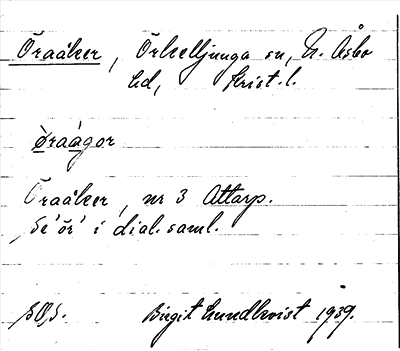 Öraåker, Örkelljunga sn, N. Åsbo
hd, Krist. l.
òraágor
Öraåker, nr 3 Attarp.
Se 'ör' i dial. saml.
Birgit Lundkvist 1939.